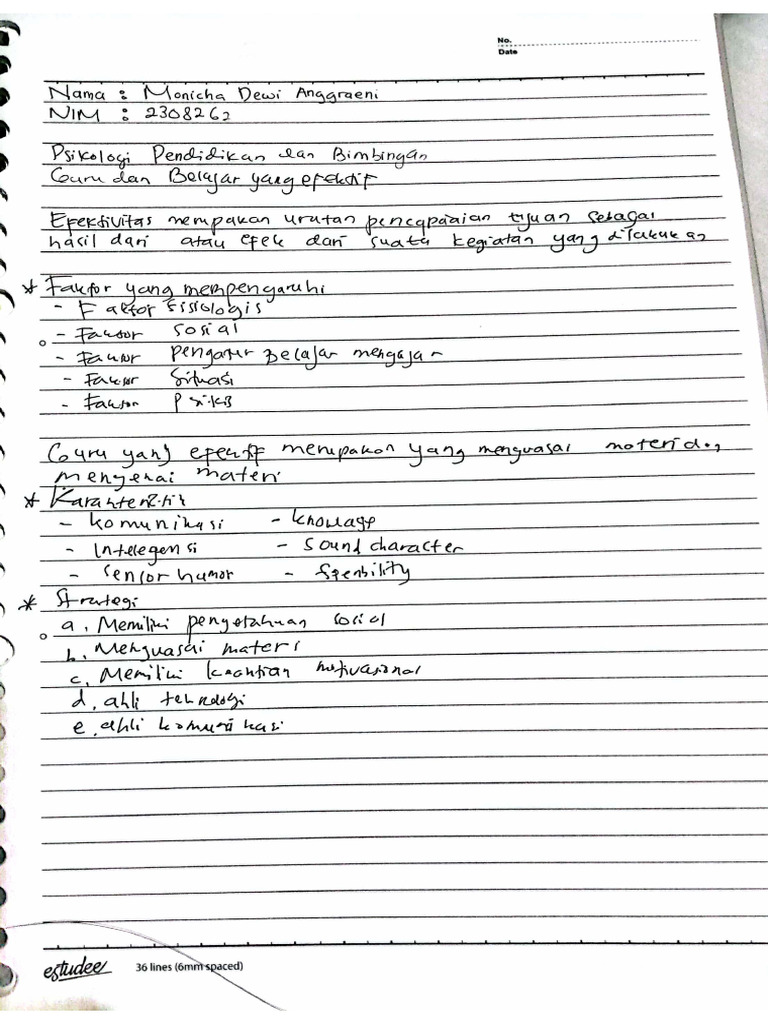 No.
Date
Nama : Monicha Dewi Anggraeni
NIM : 2308262
Psikologi Pendidikan dan Bimbingan
Guru dan Belajar yang efektif
Efektivitas merupakan urutan pencapaian tujuan sebagai
hasil dari atau efek dari suatu kegiatan yang dilakukan
* Faktor yang mempengaruhi
- Faktor Fisiologis
- Faktor sosial
- Faktor pengatur Belajar mengajar
- Faktor Situasi
- Faktor Psikis
Guru yang efektif merupakan yang menguasai materi
mengenai materi
* Karakteristik
- komunikasi - knowlage
- Intelegensi - Sound character
- Sensor humor
* Strategi
a. Memiliki pengetahuan sosial
b. Menguasai materi
c. Memiliki keahlian motivasional
d. ahli teknologi
e. ahli komunikasi
estudee 36 lines (6mm spaced)